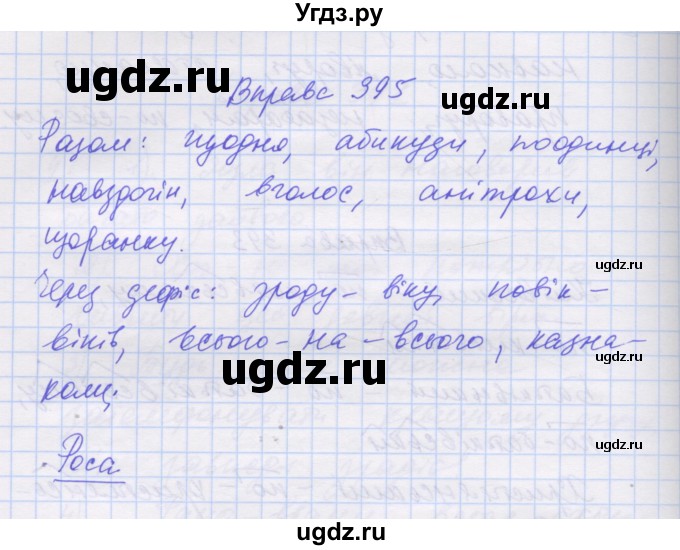 Угдз.ру
ugdz.ru
ugdz.ru
Вправа 395
Разом: щодня, абикуди, поодинці,
навздогін, вголос, анітрохи,
щоранку.
ugdz.ru
Через дефіс: зроду-віку, повік-
віків, всього-на-всього, казна-
ugdz.ru
ugdz.ru
коли.
ugdz.ru
Роса
ugdz.ru